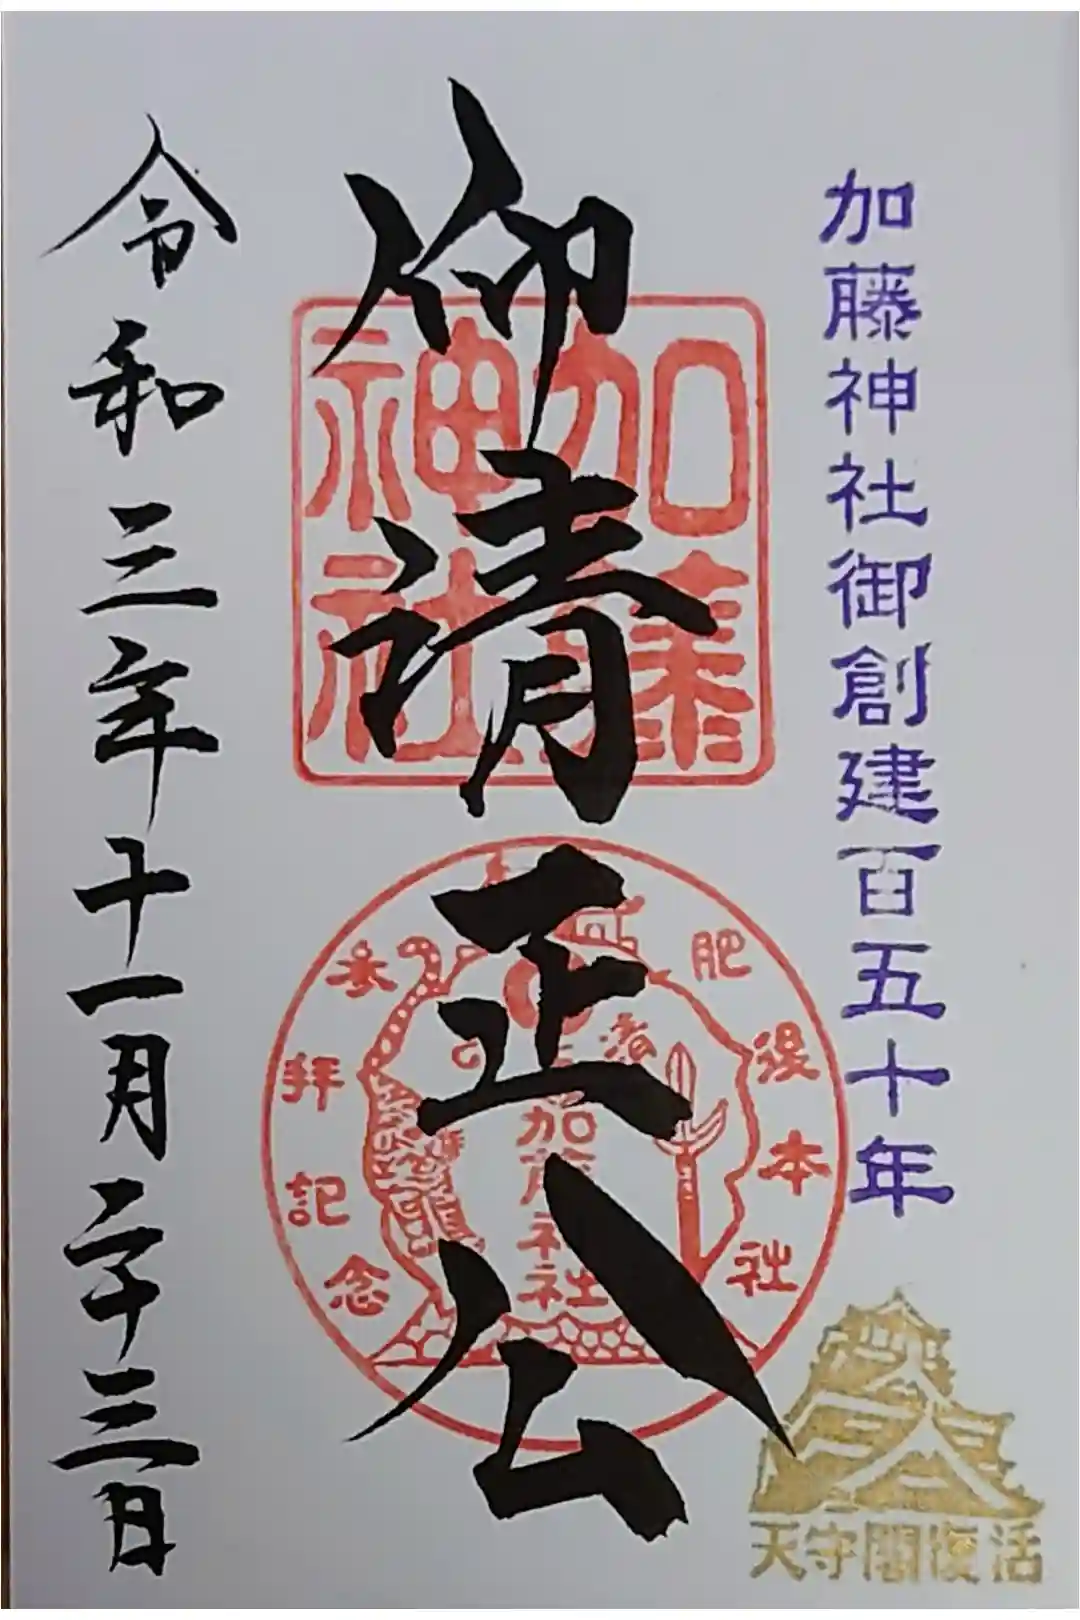 加藤神社御創建百五十年
仰清正公
加藤
神社
肥後本社
参拝記念
加藤神社
令和三年十一月二十三日
天守閣復活